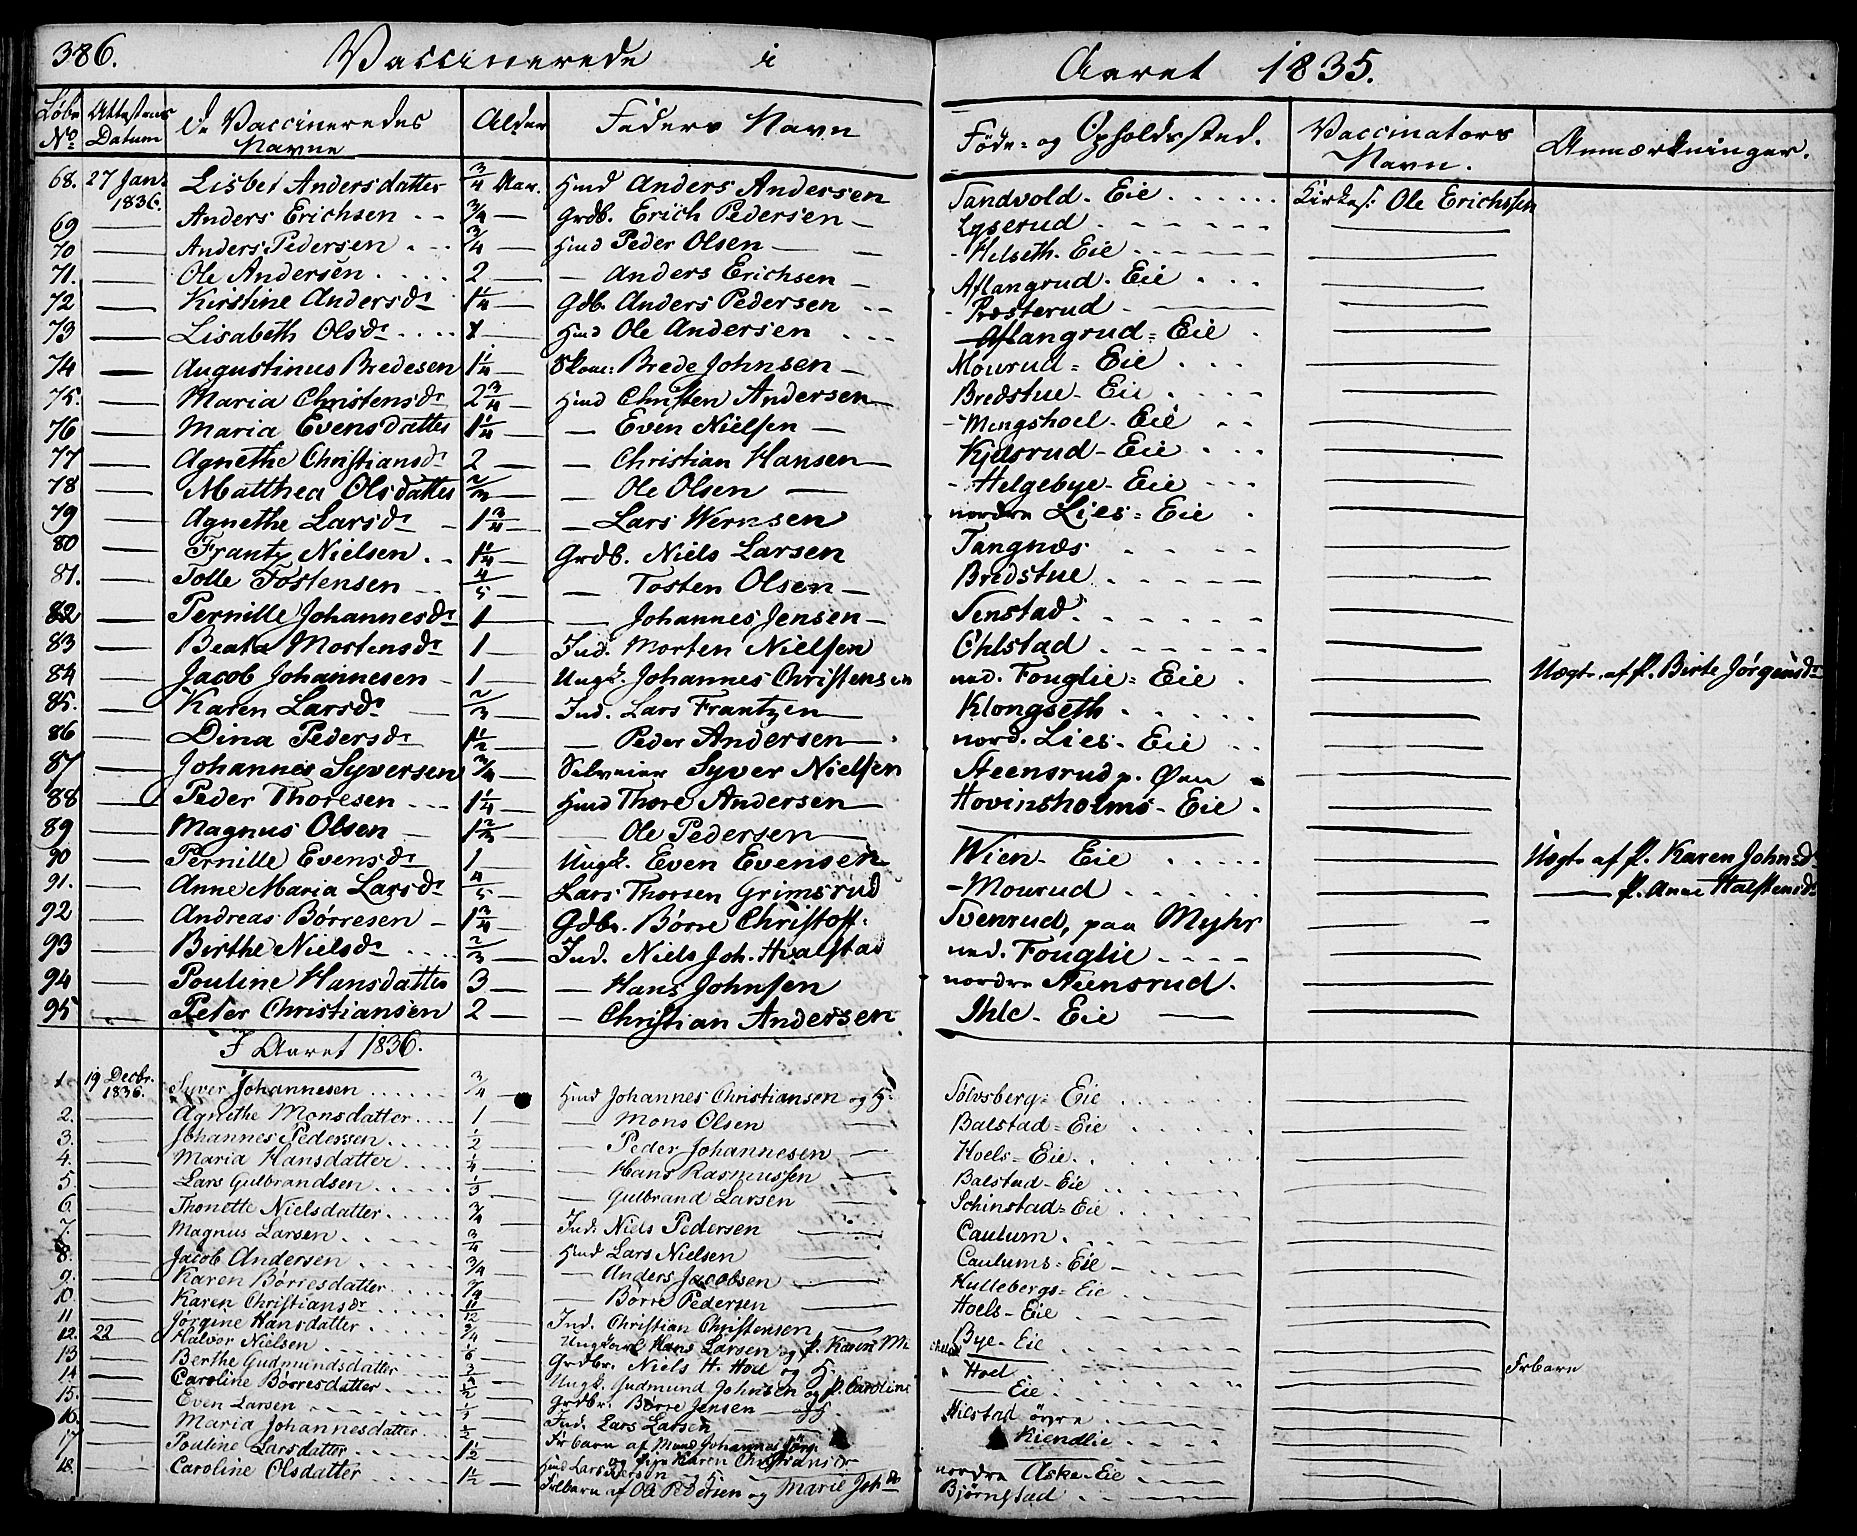 386. Vaccinerede i Aaret 1835.
Løbe No Attestens Datum De Vaccineredes Navne Alder Faders Navn Føde- og Opholdssted. Vaccinators Navn. Anmærkninger.
68. 27 Jan. 1836. Lisbet Andersdatter 3/4 Aar. Hmd Anders Andersen Sandvold-Eie Kirkes: Ole Erichssen
69 — Anders Erichsen 3/4 — Grdb. Erich Pedersen — Lyserud —
70 — Anders Pedersen 3/4 — Hmd Peder Olsen — Helseth-Eie —
71. — Ole Andersen 2 — — Anders Erichsen — Aflangrud-Eie —
72 — Kirstine Andersdr 1 1/4 — Gdb. Anders Pedersen Præsterud —
73 — Lisabeth Olsdr 1 — Hmd Ole Andersen Aflangrud=Eie —
74 — Augustinus Bredesen 1 1/4 — Skom: Brede Johnsen — Mourud=Eie —
75. — Maria Christensdr 2 3/4 — Hmd Christen Andersen Bredstue-Eie —
76 — Maria Evensdatter 1 1/4 — — Even Nielsen — Mengshoel-Eie —
77 — Agnethe Christiansdr 2 — — Christian Hansen — Kjelsrud-Eie —
78 — Matthea Olsdatter 2/3 — — Ole Olsen — Helgebye-Eie —
79 — Agnethe Larsdr 1 3/4 — — Lars Wernsen nordre Lies=Eie —
80 — Frantz Nielsen 1 1/4 — Grdb. Niels Larsen Tangnæs —
81. — Tolle Tostensen 4/5 — — Tosten Olsen — Bredstue —
82 — Pernille Johannesdr 1 — — Johannes Jensen — Tenstad —
83 — Beata Mortensdr 1 — Ind. Morten Nielsen Ohlstad —
84 — Jacob Johannesen 1 — Ungk. Johannes Christensen ned. Fouglie=Eie — Uægt. af P. Birte Jørgensdr
85. — Karen Larsdr 2/3 — Ind. Lars Frantzen Klongseth —
86 — Dina Pedersdr 1 1/2 — — Peder Andersen — nord. Lies-Eie —
87 — Johannes Syversen 3/4 — Selveier Syver Nielsen Steensrud p. Øen —
88 — Peder Thoresen 1 1/4 — Hmd Thore Andersen — Hovinsholms-Eie —
89 — Magnus Olsen 1 2/3 — — Ole Pedersen — —
90 — Pernille Evensdr 1 — Ungk. Even Evensen Wien-Eie — Uægt. af P. Karen Johnsdr
91. — Anne Maria Larsdr 4/5 — Lars Thorsen Grimsrud Mourud — — P. Anne Halstensdr
92 — Andreas Børresen 1 3/4 — Gdbr. Børre Christoff. Svenrud, paa Myhr —
93 — Birthe Nielsdr 2/3 — Ind. Niels Joh. Hvalstad ned. Fouglie —
94 — Pouline Hansdatter 3 — — Hans Johnsen nordre Steensrud. —
95 — Peter Christiansen 2 — — Christian Andersen Ihle-Eie —
I Aaret 1836.
1. 19 Decbr. 1836. Syver Johannesen 3/4 Hmd Johannes Christiansen og H. Tolvsberg-Eie —
2. — Agnethe Monsdatter 1 — — Mons Olsen Balstad=Eie —
3. — Johannes Pedersen 1/2 — — Peder Johannesen — Hoels-Eie. —
4. — Maria Hansdatter 1/4 — — Hans Rasmussen — Balstad-Eie —
5. — Lars Gulbrandsen 1/3 — — Gulbrand Larsen Schinstad=Eie —
6. — Thonette Nielsdatter 3/4 — Ind. Niels Pedersen — Caulum. —
7. — Magnus Larsen 3/4 — Hmd Lars Nielsen — Caulums=Eie —
8. — Jacob Andersen 3/4 — — Anders Jacobsen — Hullebergs=Eie —
9. — Karen Børresdatter 3/4 — — Børre Pedersen — Hoels-Eie —
10. — Karen Christiansdr 11/12 — Ind. Christian Christensen — Bye-Eie —
11 — Jørgine Hansdatter 3/4 — Ungkarl Hans Larsen og P. Karen Mi Frbarn
12. 22 Halvor Nielsen 1/6 — Grdbr. Niels H. Hoel og H Hoel —
13 — Berthe Gudmundsdatter — Ungk. Gudmund Johnsen og P. Caroline — Eie. —
14 — Caroline Børresdatter 1/2 — Grdbr. Børre Jensen — og H. Hilstad øvre —
15. — Even Larsen 1/3 — Ind. Lars Larsen Kiendlie —
16. — Maria Johannesdatter 1/2 — Frbarn af Mand Johannes Jørg. og Pige Karen Christiansdr
17 — Pouline Larsdatter 1 1/2 Hmd Lars — nordre Aske-Eie —
18. — Caroline Olsdatter 1 1/2 — Frlbarn af Ole Pedersen og Marie Johdr Bjørnstad —